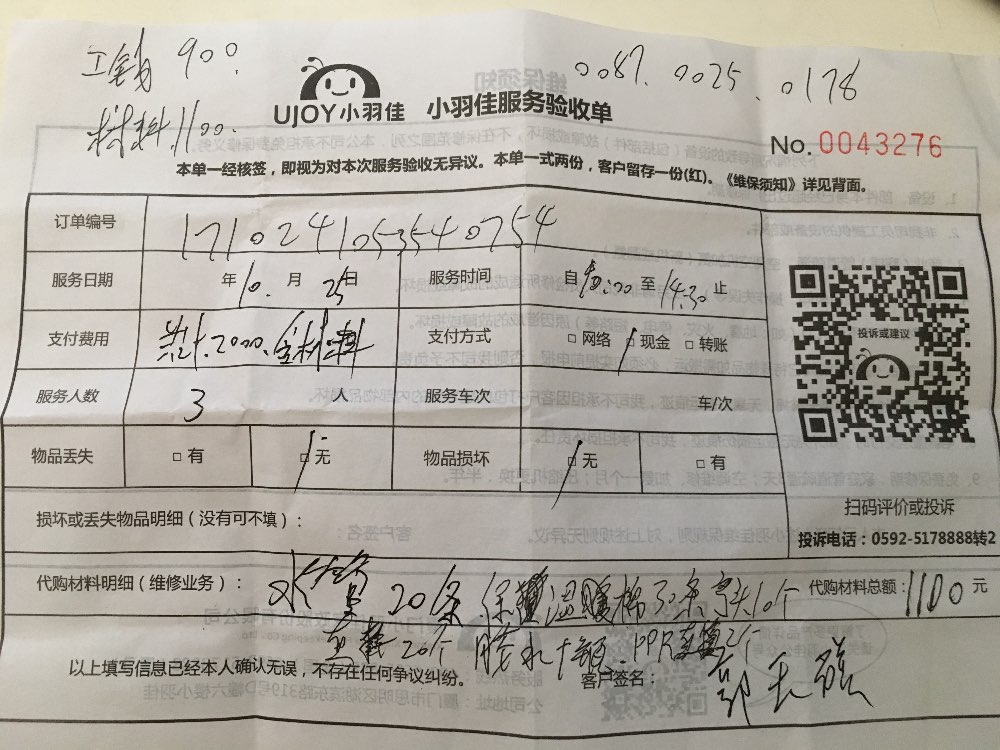 工钱 900.
材料 1100.
0087. 0025. 0178
UJOY小羽佳 小羽佳服务验收单
No. 0043276
本单一经核签，即视为对本次服务验收无异议。本单一式两份，客户留存一份(红)。《维保须知》详见背面。
订单编号 1710241053540754
服务日期 年 10. 月 25 日 服务时间 自 10:00 至 14:30 止
支付费用 共计.2000. 含材料 支付方式 □ 网络 □ 现金 □ 转账
服务人数 3 人 服务车次 车/次
物品丢失 □ 有 □ 无 物品损坏 □ 无 □ 有
投诉或建议
扫码评价或投诉
投诉电话：0592-5178888转2
损坏或丢失物品明细（没有可不填）：
代购材料明细（维修业务）： 水管 20条 保温 棉 条 头10个 代购材料总额：1100 元
直截 20个 胶水 瓶. PPR 2个
以上填写信息已经本人确认无误，不存在任何争议纠纷。 客户签名：